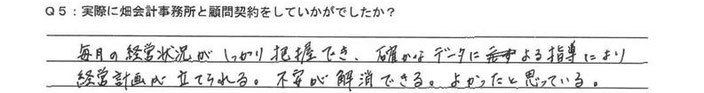 Q5：実際に畑会計事務所と顧問契約をしていかがでしたか？
毎月の経営状況がしっかり把握でき、確かなデータによる指導により
経営計画が立てられる。不安が解消できる。よかったと思っている。